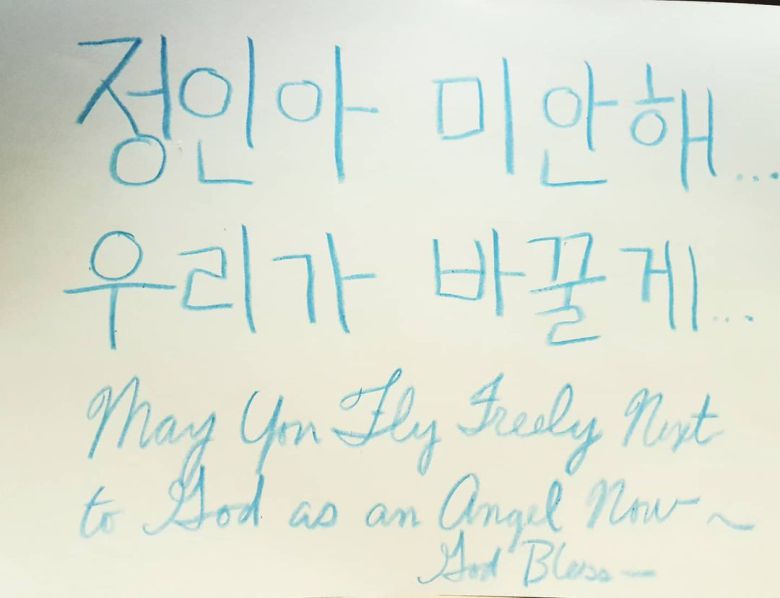 정인아 미안해...
우리가 바꿀게...
May You Fly Freely Next
to God as an Angel Now~
God Bless—